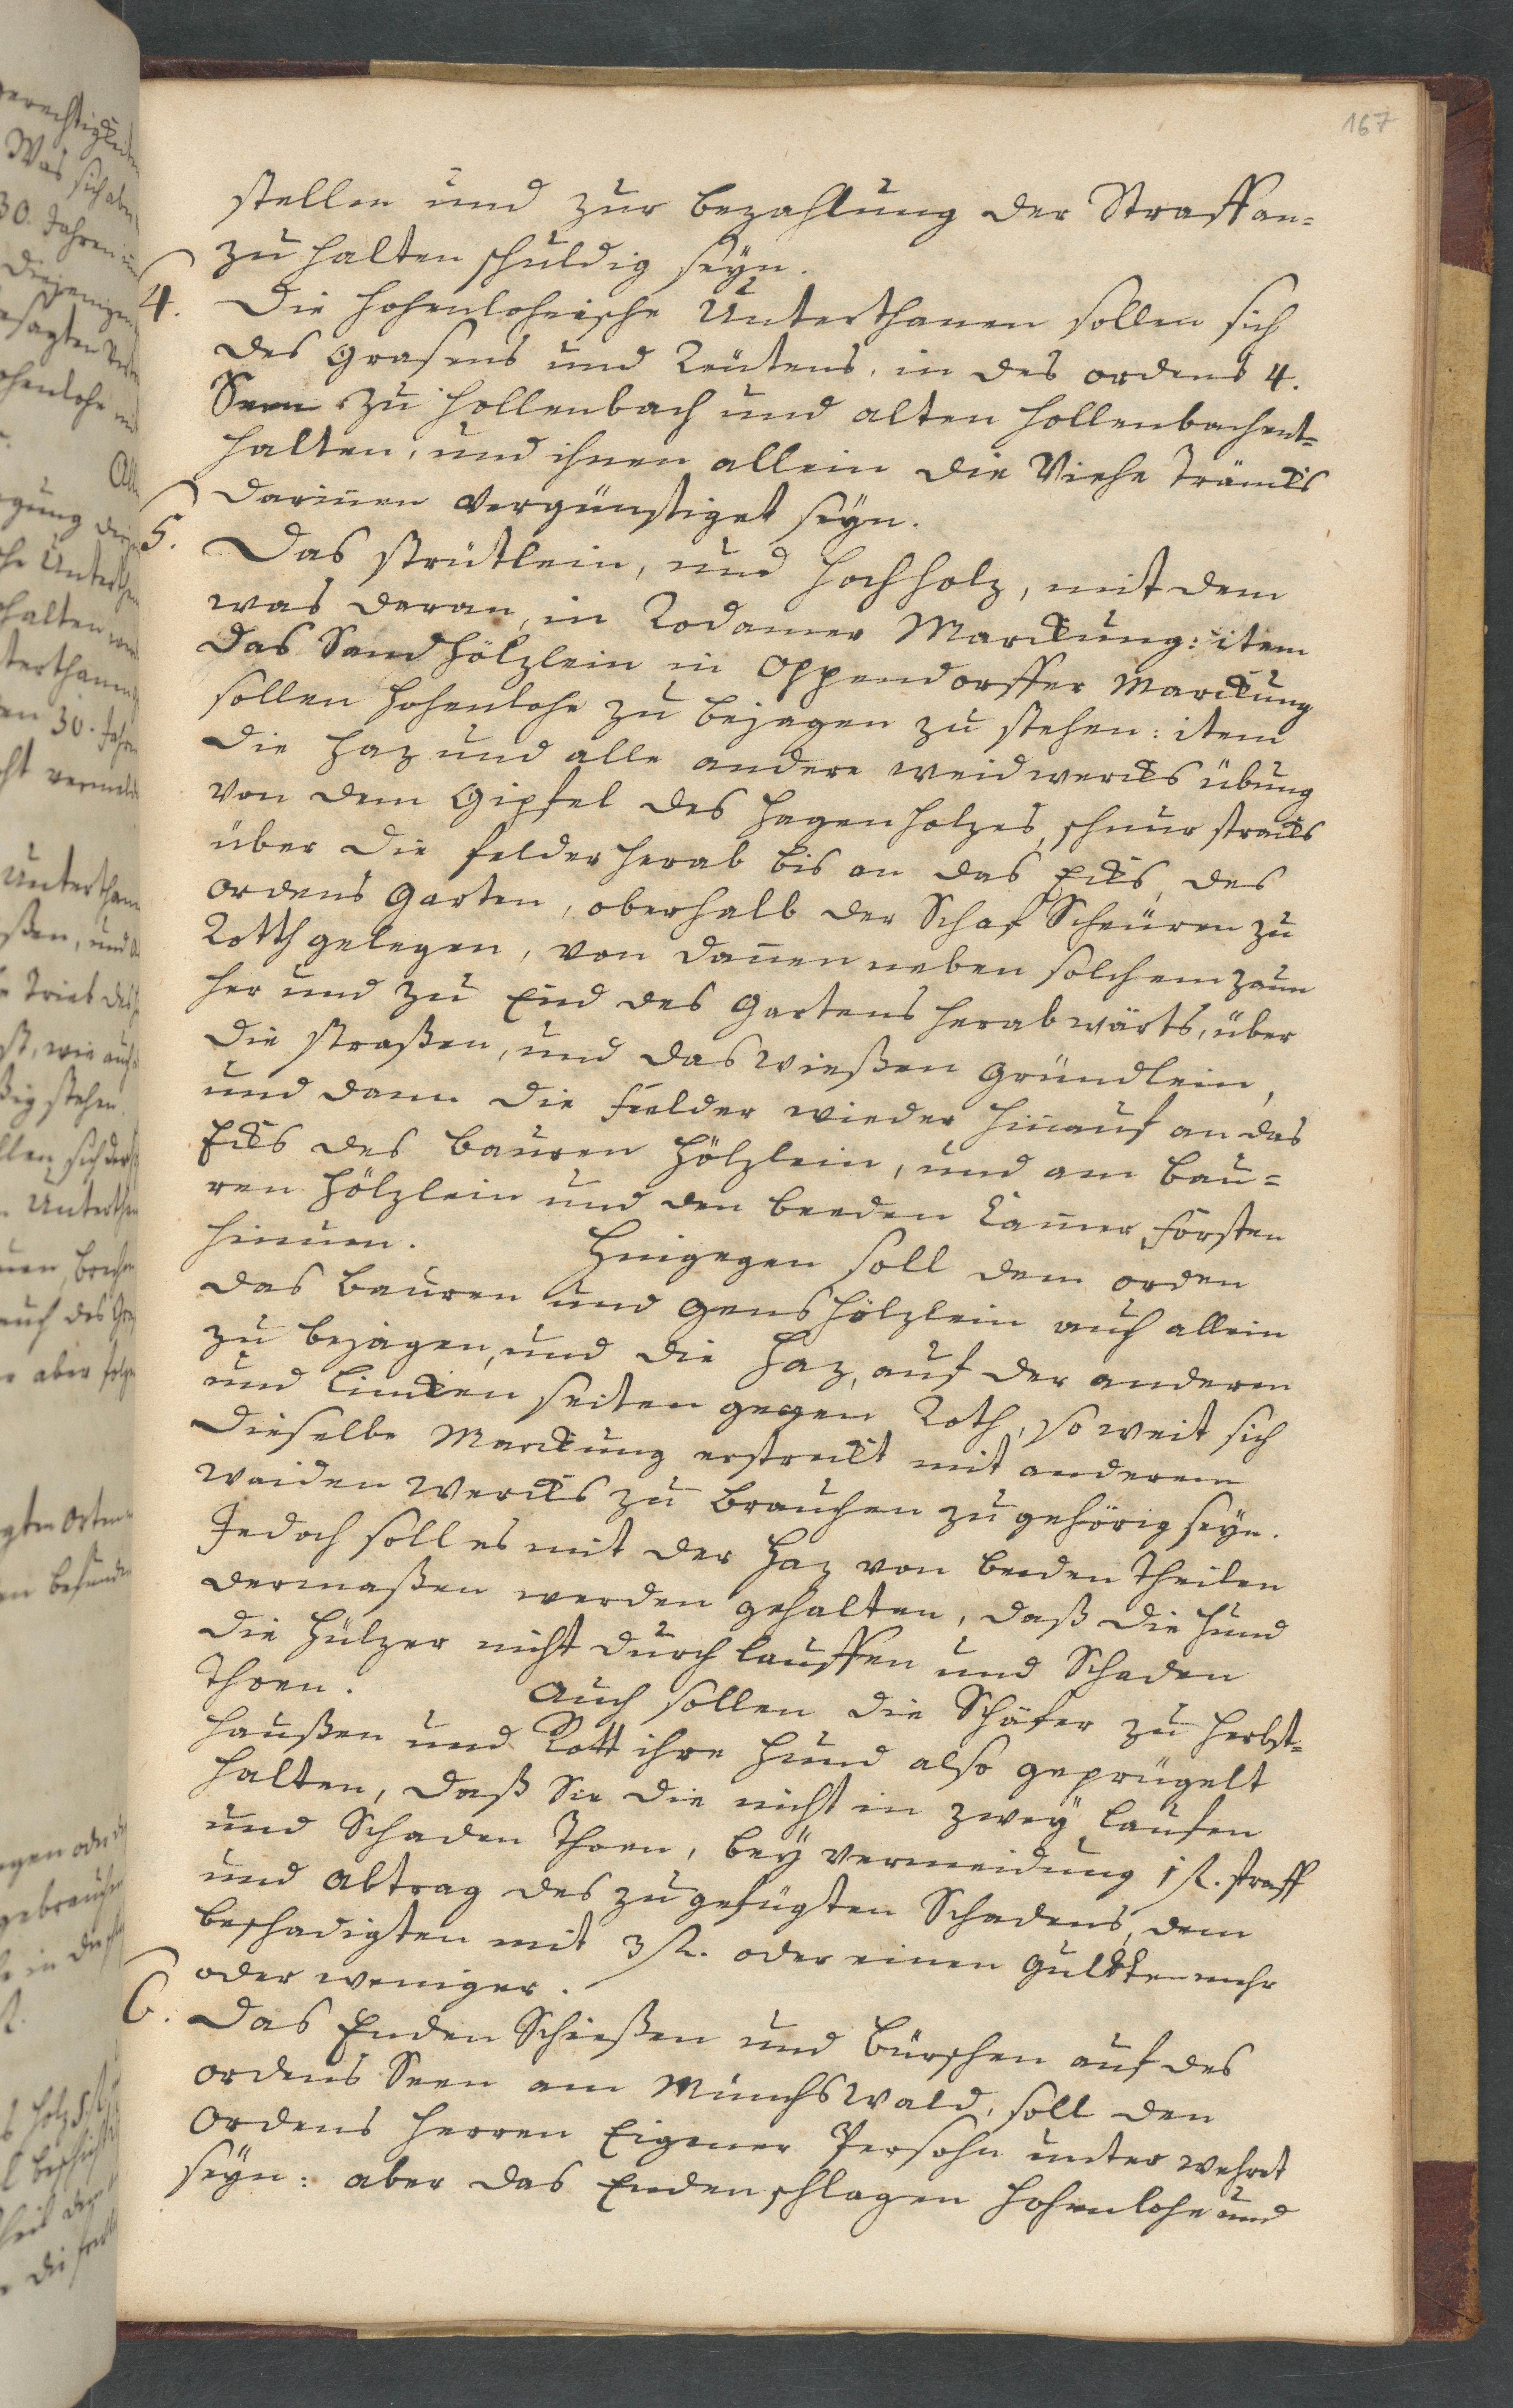 167
stellen und zur bezahlung der Straff an=
zu halten schuldig seyn.
4. Die Hohenlohische Unterthanen sollen sich
des Grasens und Reutens, in des ordens 4.
Seen zu Hollenbach und alten Hollenbach ent=
halten, und ihnen allein die Viehe Träncks
darinnen vergünstiget seyn.
5. Das strütlein, und hochholz, mit dem
was daran, in Rodamer Marckung: item
das Sandhölzlein in Oppendorffer Marckung
sollen Hohenlohe zu bejagen zu stehen: item
die Haz und alle andere weidwercks übung
von dem Gipfel des Hagenholzes, schnur stracks
über die felder herab bis an das Ecks, des
ordens Garten, oberhalb der Schaf Scheuren zu
Rotth gelegen, von dannen neben solchem zaun
her und zu End des Gartens herabwärts, über
die straßen, und das wießen gründlein,
und dann die Felder wieder hinauf an das
Ecks des bauren Hölzlein, und am bau=
ren Hölzlein und den beeden Camer Forsten
hinum. Hingegen soll dem orden
das bauren und Genshölzlein auch allein
zu bejagen, und die Haz, auf der anderen
und lincken seiten gegen Roth, so weit sich
dieselbe Marckung erstreckt mit anderem
waiden wercks zu brauchen zugehörig seyn.
Jedoch soll es mit der Haz von beeden Theilen
dermaßen werden gehalten, daß die Hund
die Hülzer nicht durchlauffen und Schaden
thoen. Auch sollen die Schäfer zu Herbst=
haußen und Rott ihre Hund also geprügelt
halten, daß Sie die nicht in zweÿ laufen
und Schaden thoen, beÿ vermeidung 1 fl. straff
und abtrag des zugefügten Schadens, dem
beschädigten mit 3 fl. oder einen Gulden mehr
oder weniger.
6. Das Enden Schießen und bürschen auf des
ordens Seen am Münchswald, soll den
Ordens Herren Eigener Persohn unter wehret
seyn: aber das Enden schlagen Hohenlohe und